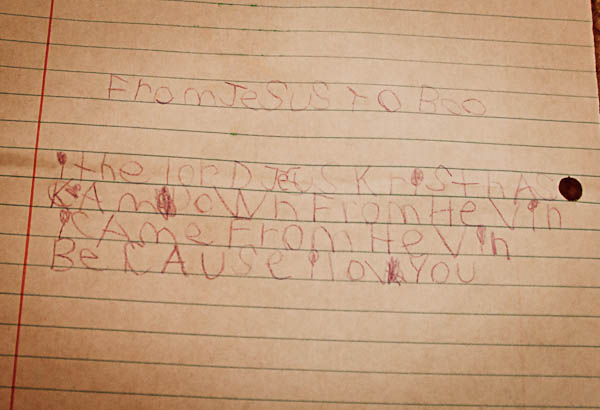 From JeSuS to Boo
i the lorD JeUS KriSt hAS
KAm DoWn From HeVin
iCAme From HeVin
BeCAUSe i lov YoU